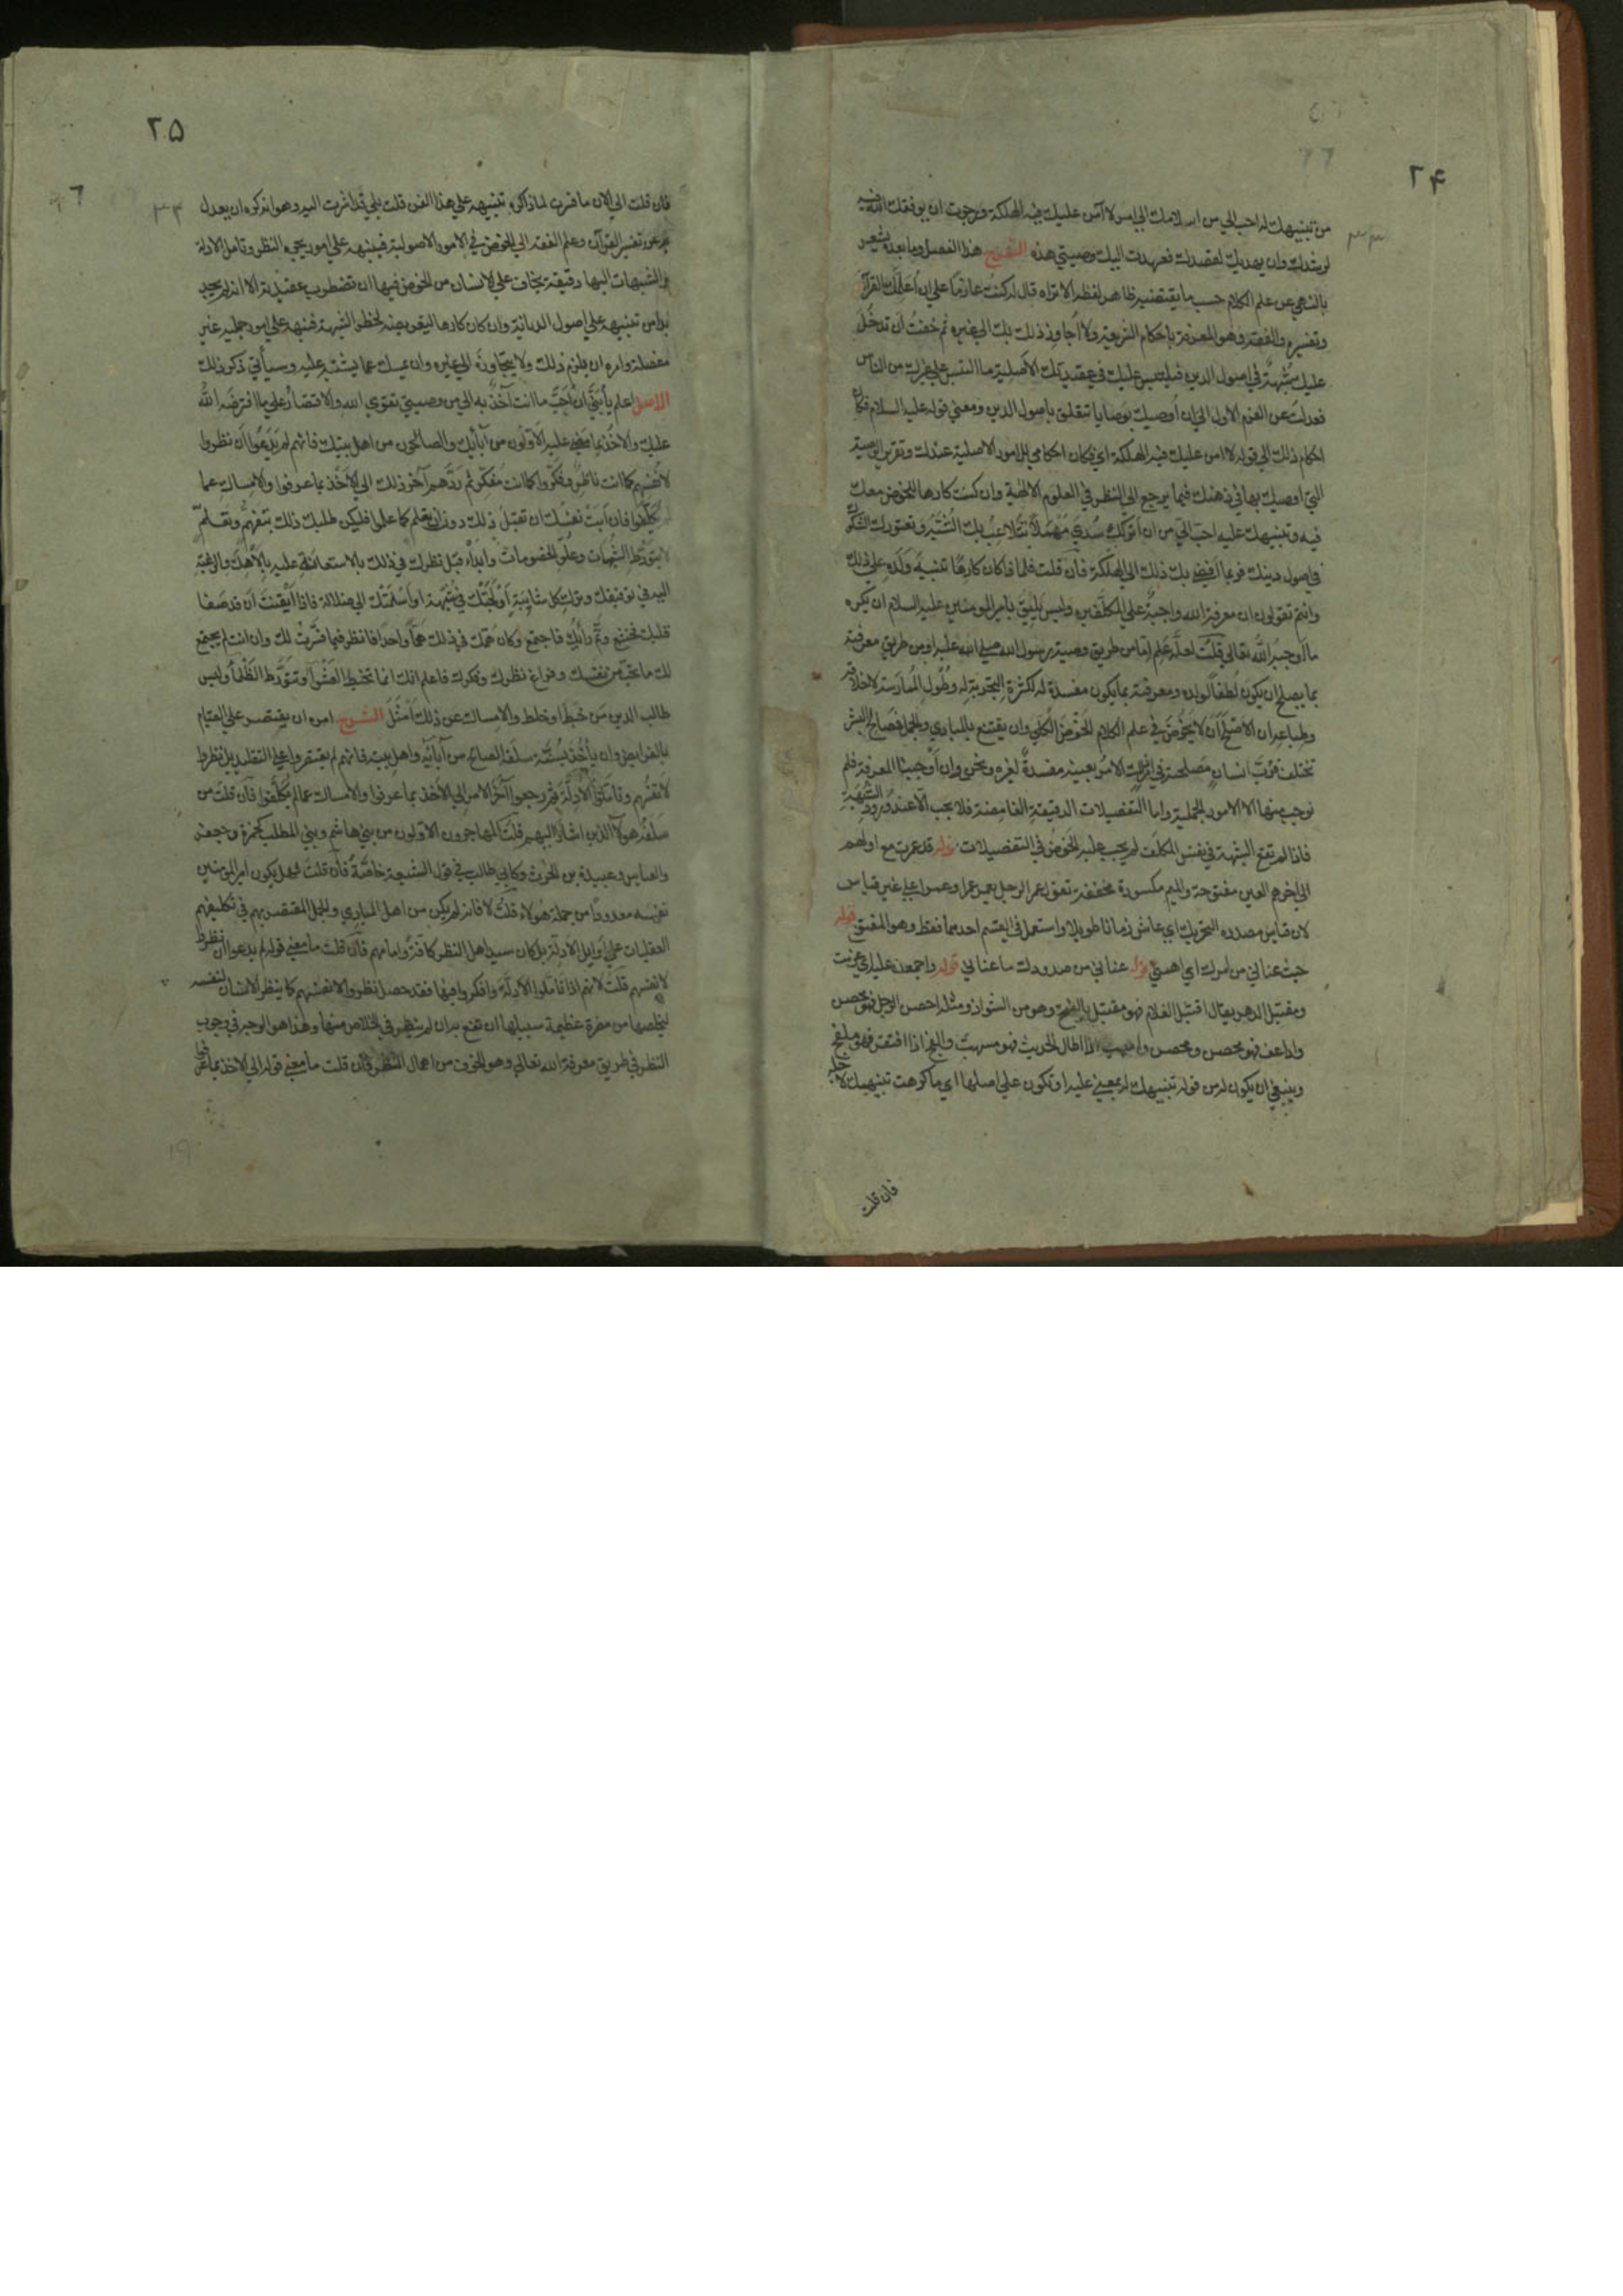 ۲۴
من تنبيهك له احب الي من اسلامك الي امر لا آمن عليك فيه الهلكة ورجوت ان يوفقك الله فيه
لرشدك وان يهديك لقصدك فعهدت اليك وصيتي هذه الشرح هذا الفصل وما بعده يشعر
بالنهي عن علم الكلام حسب ما يقتضيه ظاهر لفظه الا تراه قال له كنت عازما علي ان اعلمك القرآن
وتفسيره والفقه وهو المعرفة باحكام الشريعة ولا اجاوز ذلك بك الي غيره ثم خفت ان تدخل
عليك شبهة في اصول الدين فيلتبس عليك في عقيدتك الاصلية ما التبس علي غيرك من الناس
فعدلت عن العزم الاول الي ان اوصيك بوصايا تتعلق باصول الدين ومعني قوله عليه السلام فكان
احكام ذلك الي قوله لا امن عليك فيه الهلكة اي فكان احكامي للامور الاصلية عندك وتقرير الوصية
التي اوصيك بها في ذهنك فيما يرجع الي النظر في العلوم الالهية وان كنت كارها للخوض معك
فيه وتنبيهك عليه احب الي من ان اتركك سدي مهملا تتلاعب بك الشبه وتعتورك الشكوك
في اصول دينك فربما افضي بك ذلك الي الهلكة فان قلت فلماذا كان كارها تنبيه ولده علي ذلك
وانتم تقولون ان معرفة الله واجبة علي المكلفين وليس يليق بامير المومنين عليه السلام ان يكره
ما اوجبه الله تعالي قلت لعله علم اما من طريق وصية رسول الله صلي الله عليه او من طريق معرفته
بما يصلح ان يكون لطفا لولده ومعرفته بما يكون مفسدة له لكثرة التجربة له وطول الممارسة لاخلاقه
وطباعه ان الاصلح له ان لا يخوض في علم الكلام الخوض الكلي وان يقتنع بالمبادي والجمل فمصالح البشر
تختلف فرب انسان مصلحته في امر ذلك الامر بعينه مفسدة لغيره ونحن وان اوجبنا المعرفة فلم
نوجب منها الا الامور الجملية واما التفصيلات الدقيقة الغامضة فلا يجب الا عند ورود الشبهة
فاذا لم تقع الشبهة في نفس المكلف لم يجب عليه الخوض في التفصيلات قوله قد عمرت مع اولهم
الي اخرهم العين مفتوحة والميم مكسورة مخففة تقول عمر الرجل يعمر عمرا وعمرا علي غير قياس
لان قياس مصدره التحريك اي عاش زمانا طويلا واستعمل في القسم احدهما فقط وهو المفتوح قوله
حيث عناني من امرك اي اهمني قوله عناني من صدودك ما عناني قوله واجمعت عليه اي عزمت
ومقتبل الدهر يقال اقتبل الغلام فهو مقتبل بالفتح وهو من الشواذ ومثله احصن الرجل فهو محصن
واذا عف فهو محصن ومحصن واسهب اذا اطال الحديث فهو مسهب والفج اذا افتقر فهو ملفج
وينبغي ان يكون له من قوله تنبيهك له بمعني عليه او تكون علي اصلها اي ما كرهت تنبيهك لاجله
فان قلت
۲۵
فان قلت الي الان ما فسرت لماذا كره تنبيهه علي هذا الفن قلت بلي قد اشرت اليه وهو انه كره ان يعدل
به عن تفسير القرآن وعلم الفقه الي الخوض في الامور الاصولية فينبهه علي امور يجره النظر وتامل الادلة
والشبهات اليها دقيقة يخاف علي الانسان من الخوض فيها ان تضطرب عقيدته الا انه لم يجد
بدا من تنبيهه علي اصول الديانة وان كان كارها ليعريضه لخطر الشبهة فنبهه علي امور جملية غير
مفصلة وامره ان يلزم ذلك ولا يتجاوزه الي غيره وان يمسك عما يشتبه عليه وسيأتي ذكر ذلك
الاصل اعلم يا بني ان احب ما انت آخذ به الي من وصيتي تقوي الله والاقتصار علي ما افترضه الله
عليك والاخذ بما مضي عليه الاولون من آبائك والصالحون من اهل بيتك فانهم لم يدعوا ان نظروا
لانفسهم كما انت ناظر وفكروا كما انت مفكر ثم ردهم آخر ذلك الي الاخذ بما عرفوا والامساك عما
لم يكلفوا فان ابت نفسك ان تقبل ذلك دون ان تعلم كما علموا فليكن طلبك ذلك بتفهم وتعلم
لا بتورط الشبهات وعلو الخصومات وابدأ قبل نظرك في ذلك بالاستعانة عليه بالاهك والرغبة
اليه في توفيقك وترك كل شايبة اولجتك في شبهة او اسلمتك الي ضلالة فاذا ايقنت ان قد صفا
قلبك فخشع وتم رأيك فاجتمع وكان همك في ذلك هما واحدا فانظر فيما فسرت لك وان انت لم يجتمع
لك ما تحب من نفسك وفراغ نظرك وفكرك فاعلم انك انما تخبط العشوآ وتتورط الظلمآ وليس
طالب الدين من خبط او خلط والامساك عن ذلك امثل الشرح امره ان يقتصر علي القيام
بالفرايض وان يأخذ بسنة سلفه الصالح من آبائه واهل بيته فانهم لم يقتصروا علي التقليد بل نظروا
لانفسهم وتأملوا الادلة ثم رجعوا آخر الامر الي الاخذ بما عرفوا والامساك عما لم يكلفوا فان قلت من
سلفه هولآ الذين اشار اليهم قلت المهاجرون الاولون من بني هاشم وبني المطلب كحمزة وجعفر
والعباس وعبيدة بن الحرث وكابي طالب في قول الشيعة خاصة فان قلت فهل يكون امير المومنين
نفسه معدودا من جملة هولاء قلت لا فانه لم يكن من اهل المبادي والجمل المقتصر بهم في تكليفهم
العقليات علي اوايل الادلة بل كان سيد اهل النظر كافة وامامهم فان قلت ما معني قوله لم يدعوا ان نظروا
لانفسهم قلت لانهم اذا تاملوا الادلة وافكروا فيها فقد حصل نظروا لانفسهم كما ينظر الانسان لنفسه
ليخلصها من مضرة عظيمة سبيلها ان تقع به ان لم ينظر في الخلاص منها وهذا هو الوجه في وجوب
النظر في طريق معرفة الله تعالي وهو الخوف من اهمال النظر فان قلت ما معني قوله الي الاخذ بما عرفوا